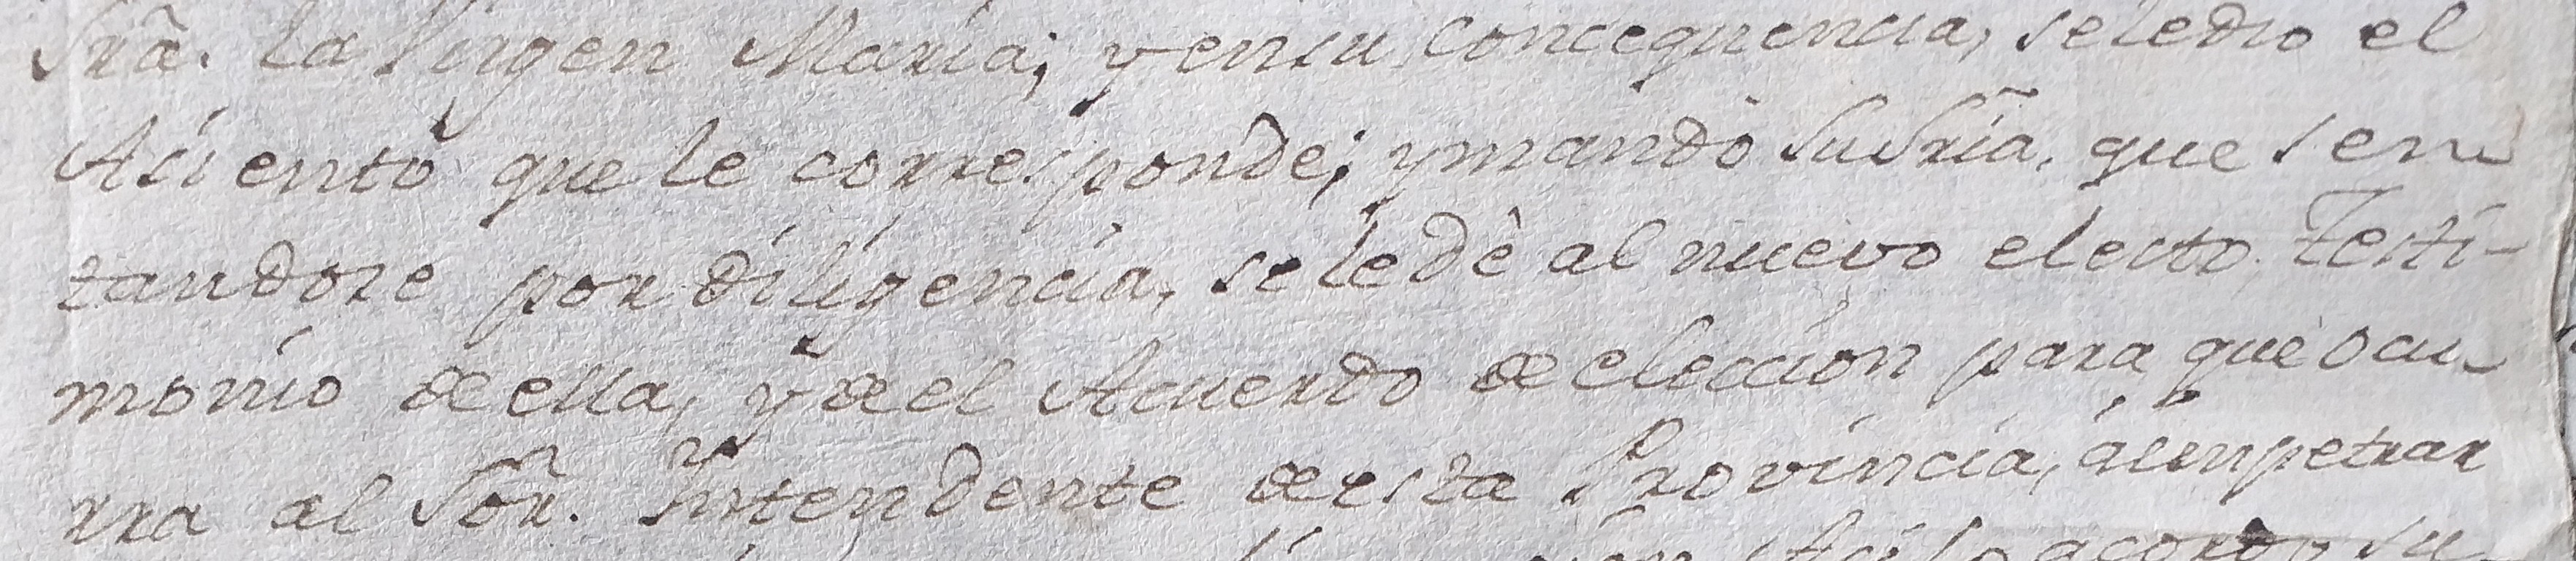 Srã. la Virgen Maria; y en su concequencia, se le dio el
Asiento que le corresponde; y mandò Su Sria. que sen
tandose por diligencia, se le dè al nuevo electo Testi-
monio de ella, y de el Acuerdo de eleccion para que ocu
rra al Sõr. Intendente de esta Provincia, à impetrar
Asi lo acordò, su